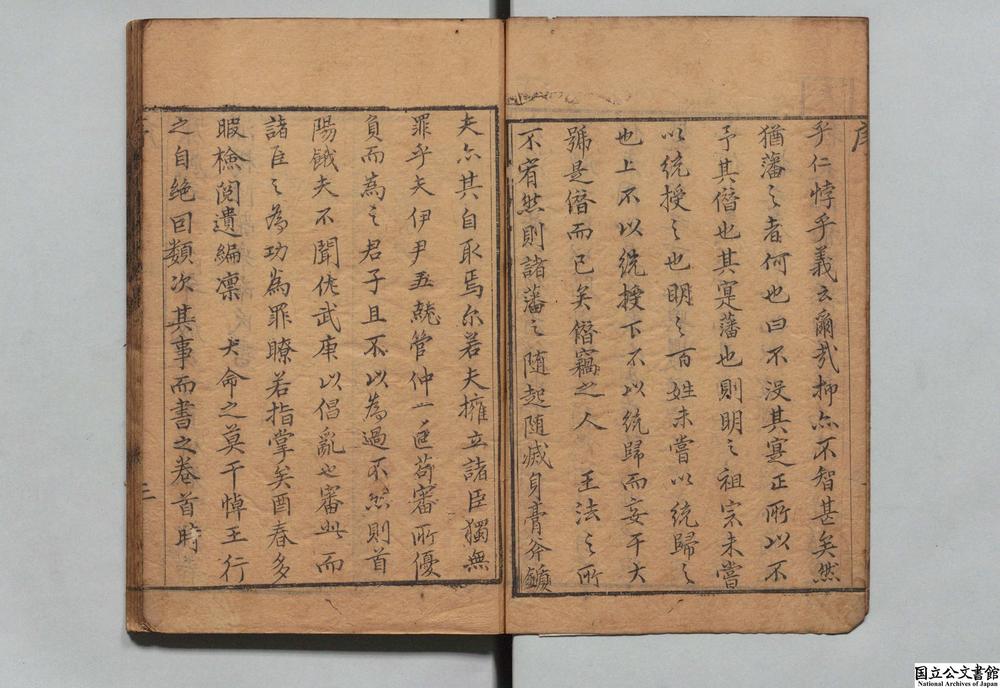 序
乎仁悖乎義云爾哉抑亦不智甚矣然
猶藩之者何也曰不没其寔正所以不
予其僭也其寔藩也則明之祖宗未嘗
以統授之也明之百姓未嘗以統歸之
也上不以統授下不以統歸而妄干大
號是僭而已矣僭竊之人 王法之所
不宥然則諸藩之随起随滅身膏斧鑕
夫亦其自取焉尔若夫擁立諸臣獨無
罪乎夫伊尹五就管仲一匡苟審所優
負而為之君子且不以為過不然則首
陽餓夫不聞佐武庚以倡亂也審此而
諸臣之為功為罪瞭若指掌矣酉春多
暇檢閲遺編凜 天命之莫干悼王行
之自絶回類次其事而書之卷首時
三
国立公文書館
National Archives of Japan